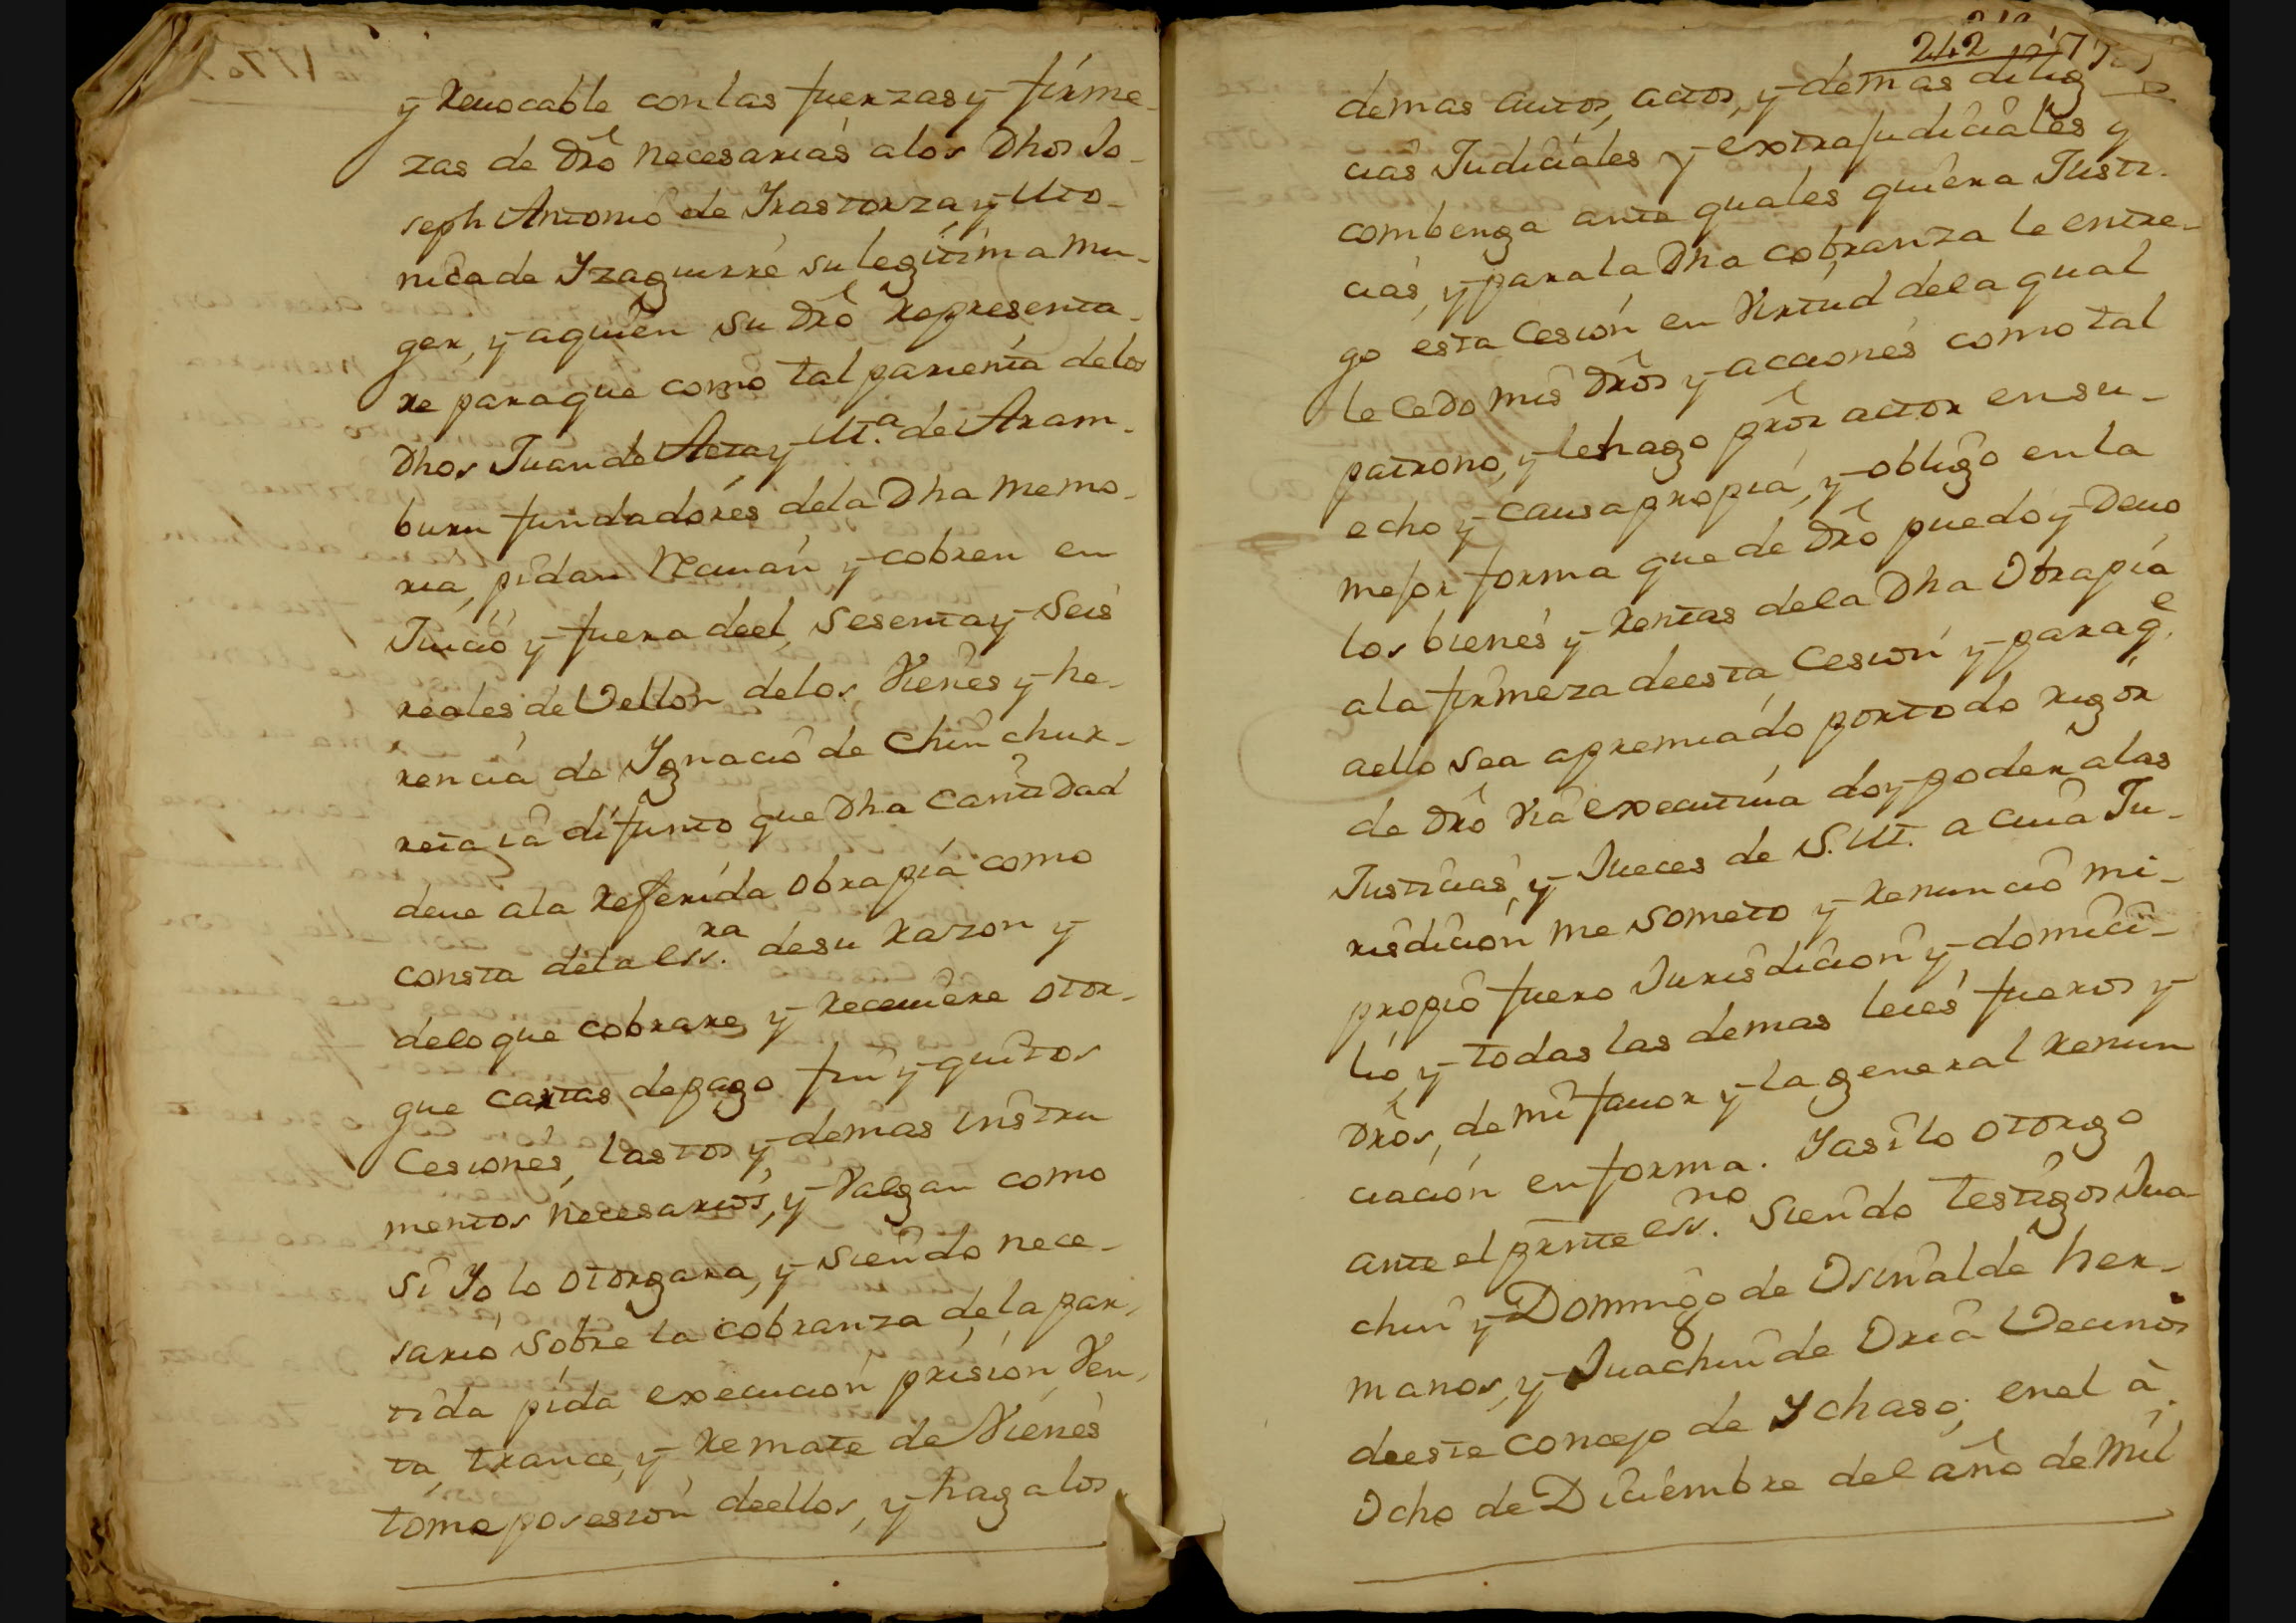 y Reuocable con las fuerzas y firme-
zas de dro necesarias a los dhos Jo-
seph Antonio de Yrastorza y Mo-
nica de Yzaguirre su legitima mu-
ger, y a quien su dro representa-
re para que como tal parienta de los
dhos Juan de Aeta y M.a de Aram-
buru fundadores de la dha memo-
ria, pidan Reciuan y cobren en
Juicio y fuera deel, sesenta y seis
reales de Vellon de los Vienes y he-
rencia de Ygnacio de Chinchur-
reta ia difunto que dha cantidad
deue a la Referida obra pia como
consta de la ess.ra de su razon y
de lo que cobrare y Receuiere otor-
gue cartas de pago fin y quitos
Cesiones, lastos y demas instru
mentos necesarios, y Valgan como
si Yo lo otorgara, y siendo nece-
sario sobre la cobranza de la par-
tida pida execucion prision Ven-
ta, trance, y Remate de Vienes
tome posesion deellos, y haga los
242
demas autos, actos, y demas dilig
cias Judiciales y extrajudiciales y
combenga ante quales quiera Justi-
cias, y para la dha cobranza le entre-
go esta Cesion en Virtud de la qual
le cedo mis dros y acciones como tal
patrono, y le hago pror actor en su-
echo y causa propia, y obligo en la
mejor forma que de dro puedo y Deuo
los bienes y Rentas de la Dha Obrapia
a la firmeza deesta Cesion y para q.e
aello sea apremiado por todo rigor
de dro Via executiua doy poder a las
Justicias, y Jueces de S. M. a cuia Ju-
risdicion me someto y renuncio mi-
propio fuero Jurisdicion y domici-
lio, y todas las demas leies fueros y
dros, de mi fauor y la general Renun
ciacion en forma. Y asi lo otorgo
ante el prnte ess.no siendo testigos Jua
chin y Domingo de Osinalde her-
manos, y Juachin de Oria Vecinos
deeste concejo de Ychaso, en el à
Ocho de Diciembre del año de Mil